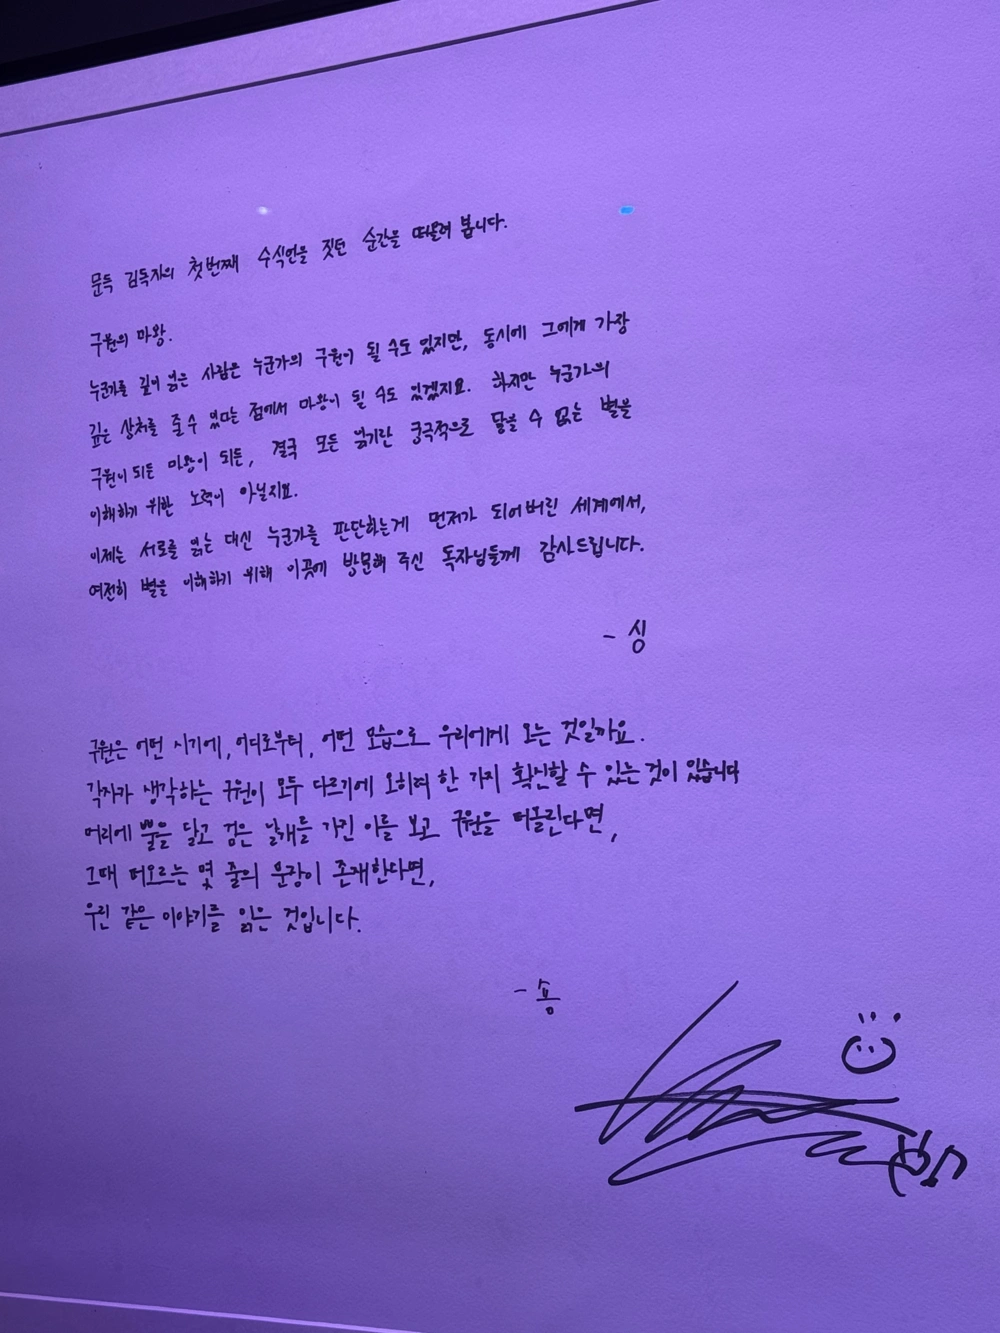 문득 김독자의 첫번째 수식언을 짓던 순간을 떠올려 봅니다.
구원의 마왕.
누군가를 깊이 읽은 사람은 누군가의 구원이 될 수도 있지만, 동시에 그에게 가장
깊은 상처를 줄 수 있다는 점에서 마왕이 될 수도 있겠지요. 하지만 누군가의
구원이 되든 마왕이 되든, 결국 모든 읽기란 궁극적으로 닿을 수 없는 별을
이해하기 위한 노력이 아닐지요.
이제는 서로를 읽는 대신 누군가를 판단하는게 먼저가 되어버린 세계에서,
여전히 별을 이해하기 위해 이곳에 방문해 주신 독자님들께 감사드립니다.
- 싱
구원은 어떤 시기에, 어디로부터, 어떤 모습으로 우리에게 오는 것일까요.
각자가 생각하는 구원이 모두 다르기에 오히려 한 가지 확신할 수 있는 것이 있습니다
머리에 뿔을 달고 검은 날개를 가진 이를 보고 구원을 떠올린다면,
그때 떠오르는 몇 줄의 문장이 존재한다면,
우린 같은 이야기를 읽은 것입니다.
- 숑